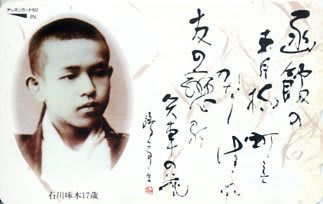 テレホンカード50
石川啄木17歳
函館の
青柳町こそ
かなしけれ
友の戀歌
矢車の花